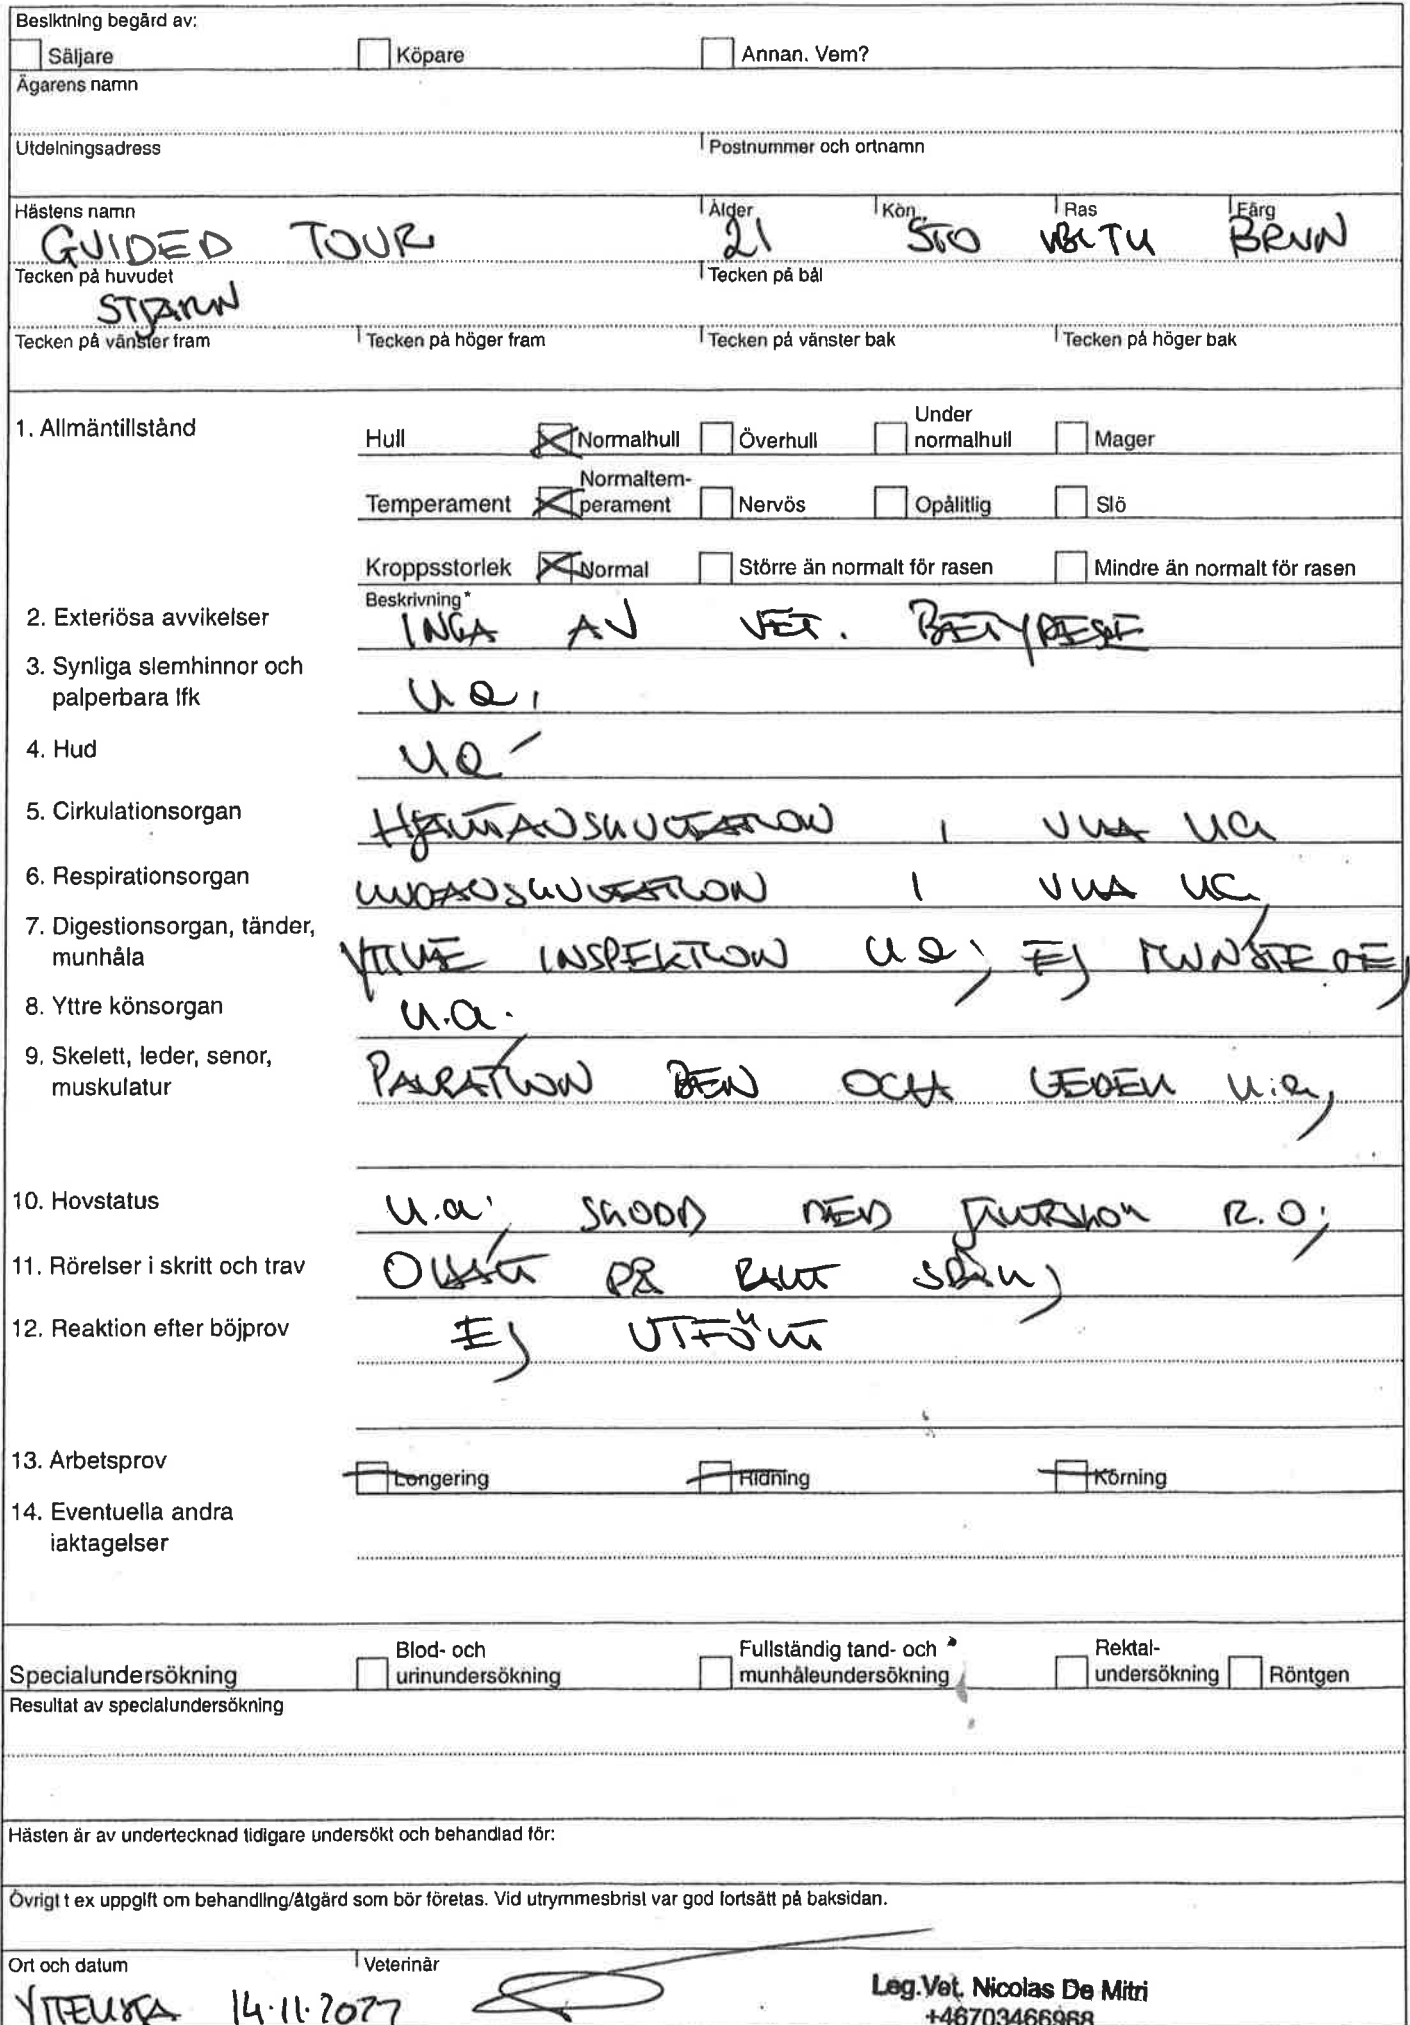 Besiktning begärd av:
Säljare Köpare Annan. Vem?
Ägarens namn
Utdelningsadress Postnummer och ortnamn
Hästens namn Ålder Kön Ras Färg
GUIDED TOUR 21 STO VBLTH BRUN
Tecken på huvudet Tecken på bål
STJÄRN
Tecken på vänster fram Tecken på höger fram Tecken på vänster bak Tecken på höger bak
1. Allmäntillstånd Hull Normalhull Överhull Under normalhull Mager
Temperament Normaltem-
perament Nervös Opålitlig Slö
Kroppsstorlek Normal Större än normalt för rasen Mindre än normalt för rasen
Beskrivning*
2. Exteriösa avvikelser INGA AV VET. BETYDELSE
3. Synliga slemhinnor och
palperbara lfk u a,
4. Hud u a
5. Cirkulationsorgan HJÄRTAUSKULTATION I VILA UA
6. Respirationsorgan LUNGAUSKULTATION I VILA UA
7. Digestionsorgan, tänder,
munhåla YTTRE INSPEKTION u a; EJ MUNSTEGE,
8. Yttre könsorgan u.a.
9. Skelett, leder, senor,
muskulatur PALPATION BEN OCH LEDER u.a,
10. Hovstatus u.a; SKODD MED R.O;
11. Rörelser i skritt och trav OHALT PÅ RAKT SPÅR,
12. Reaktion efter böjprov EJ UTFÖRT
13. Arbetsprov Longering Ridning Körning
14. Eventuella andra
iaktagelser
Specialundersökning Blod- och
urinundersökning Fullständig tand- och
munhåleundersökning Rektal-
undersökning Röntgen
Resultat av specialundersökning
Hästen är av undertecknad tidigare undersökt och behandlad för:
Övrigt t ex uppgift om behandling/åtgärd som bör företas. Vid utrymmesbrist var god fortsätt på baksidan.
Ort och datum Veterinär
YTTELSTA 14.11.2022
Leg.Vet. Nicolas De Mitri
+46703466968